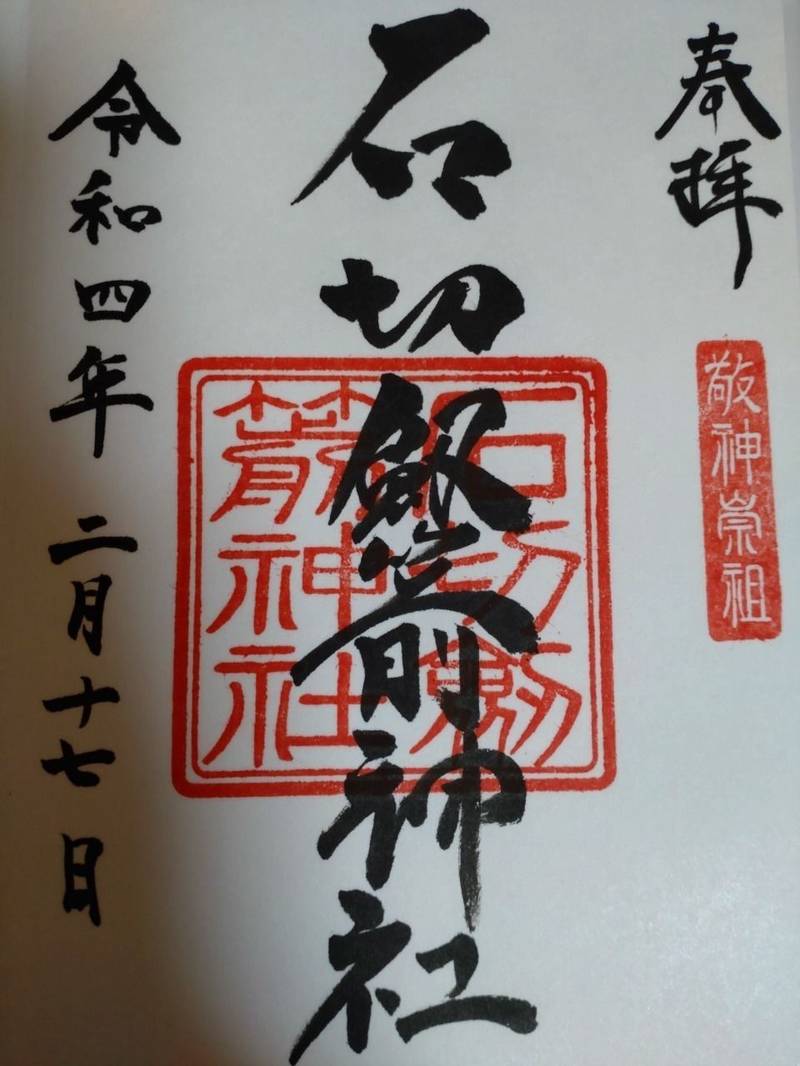 奉拝
敬神崇祖
石切劔箭神社
石切劔
箭神社
令和四年 二月十七日